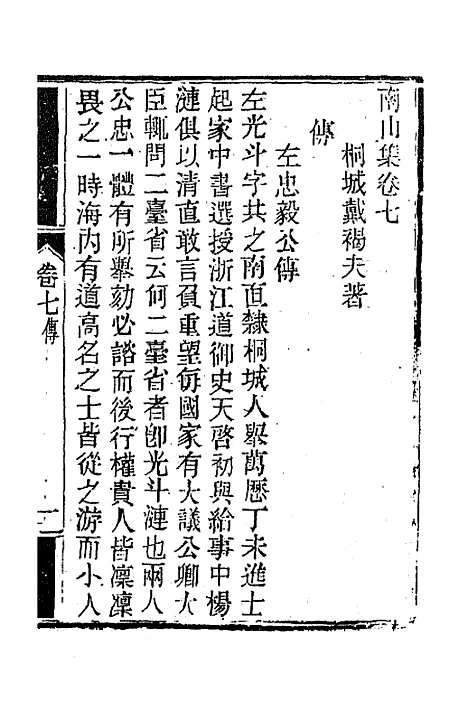 南山集卷七
桐城戴褐夫著
傳
左忠毅公傳
左光斗字共之南直隸桐城人舉萬曆丁未進士
起家中書選授浙江道御史天啓初與給事中楊
漣俱以清直敢言負重望每國家有大議公卿大
臣輒問二臺省云何二臺省者卽光斗漣也兩人
公忠一體有所舉劾必諮而後行權貴人皆凜凜
畏之一時海內有道高名之士皆從之游而小人
卷七傳
一